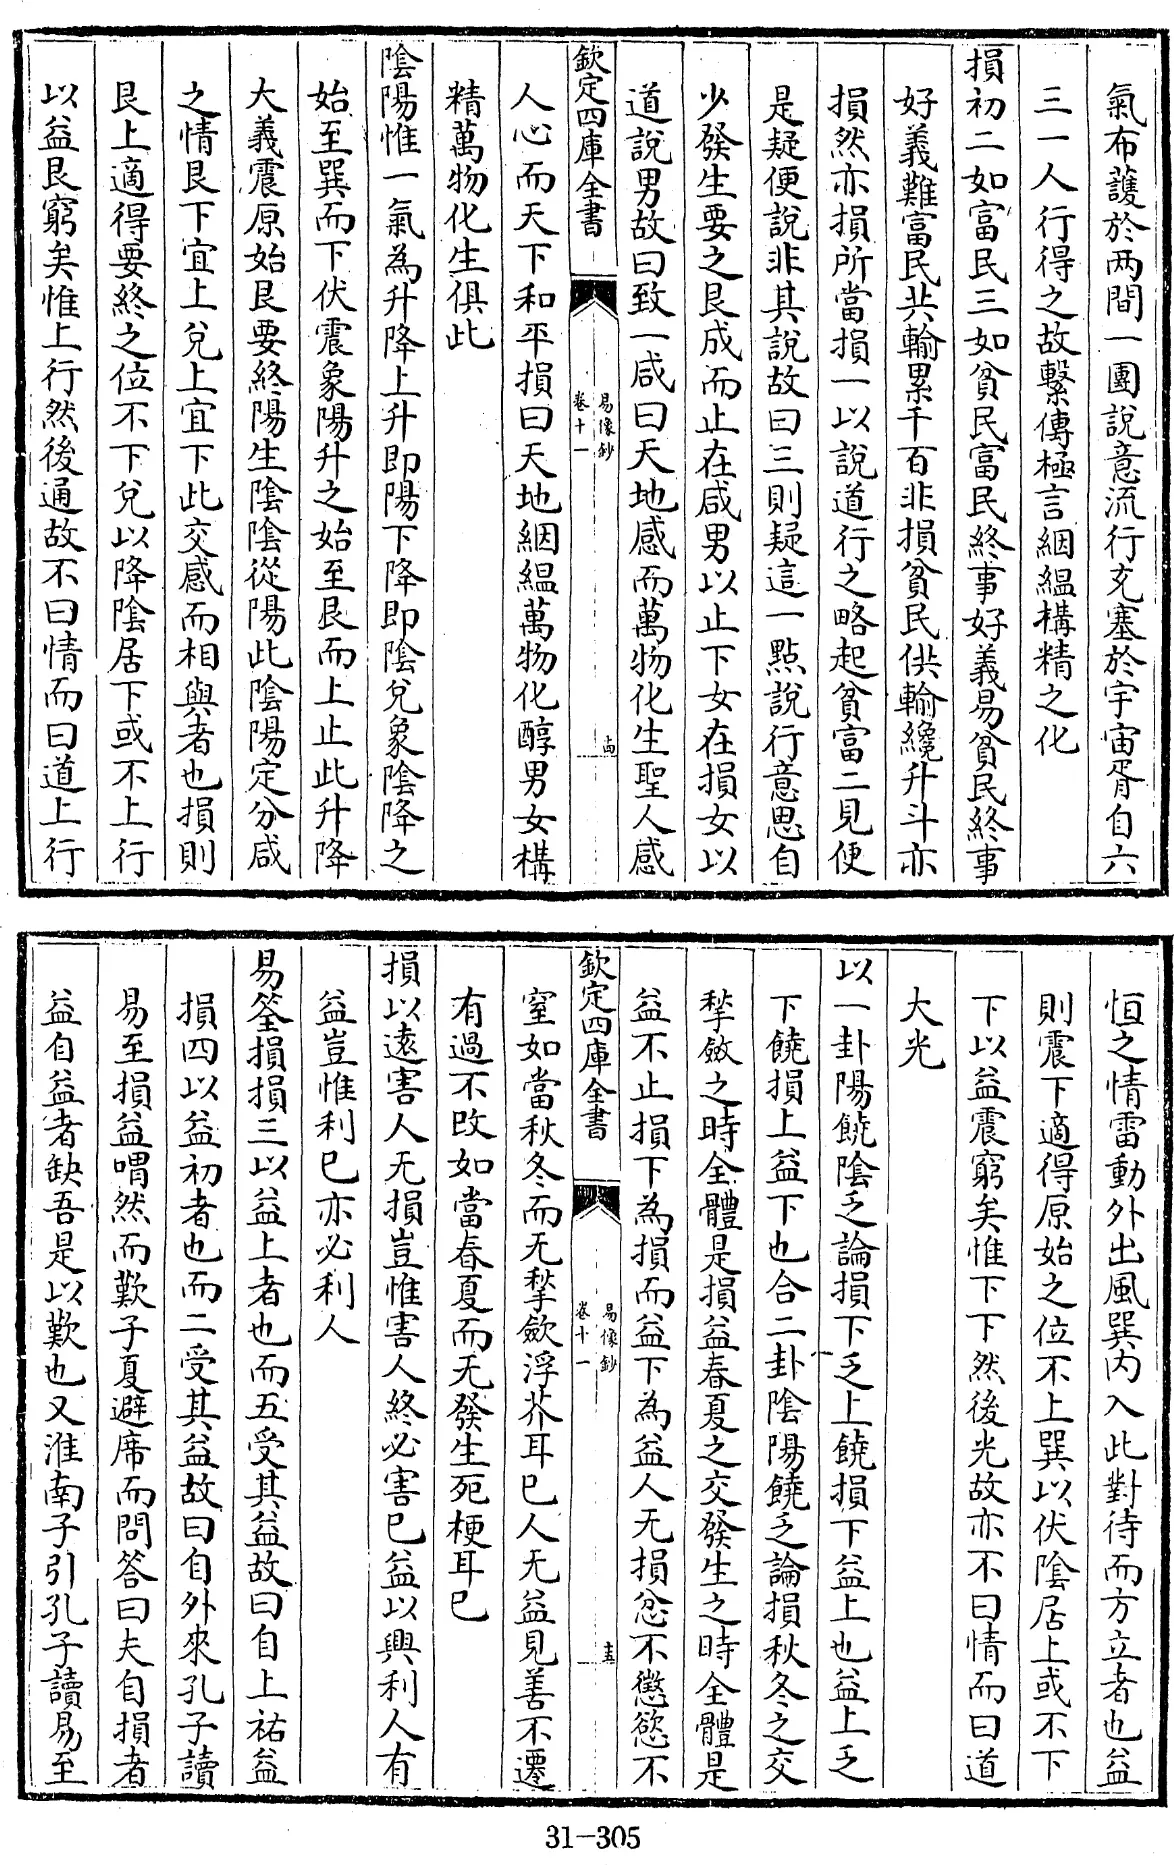 氣布䕶於两間一團說意流行充塞於宇宙胥自六
三一人行得之故繫傳極言絪縕構精之化
損初二如富民三如貧民富民終事好義易貧民終事
好義難富民共輸累千百非損貧民供輸纔升斗亦
損然亦損所當損一以說道行之略起貧富二見便
是疑便說非其說故曰三則疑這一點說行意思自
少發生要之艮成而止在咸男以止下女在損女以
道說男故曰致一咸曰天地感而萬物化生聖人感
欽定四庫全書
易像鈔
卷十一
十四
人心而天下和平損曰天地絪縕萬物化醇男女構
精萬物化生俱此
陰陽惟一氣為升降上升即陽下降即陰兌象陰降之
始至巽而下伏震象陽升之始至艮而上止此升降
大義震原始艮要終陽生陰陰從陽此陰陽定分咸
之情艮下宜上兌上宜下此交感而相與者也損則
艮上適得要終之位不下兌以降陰居下或不上行
以益艮窮矣惟上行然後通故不曰情而曰道上行
恒之情雷動外出風巽内入此對待而方立者也益
則震下適得原始之位不上巽以伏陰居上或不下
下以益震窮矣惟下下然後光故亦不曰情而曰道
大光
以一卦陽饒陰乏論損下乏上饒損下益上也益上乏
下饒損上益下也合二卦陰陽饒乏論損秋冬之交
揫斂之時全體是損益春夏之交發生之時全體是
益不止損下為損而益下為益人无損忿不懲慾不
欽定四庫全書
易像鈔
卷十一
十五
窒如當秋冬而无揫歛浮芥耳巳人无益見善不遷
有過不改如當春夏而无發生死梗耳巳
損以遠害人无損豈惟害人終必害巳益以興利人有
益豈惟利巳亦必利人
易筌損損三以益上者也而五受其益故曰自上祐益
損四以益初者也而二受其益故曰自外來孔子讀
易至損益喟然而歎子夏避席而問答曰夫自損者
益自益者缺吾是以歎也又淮南子引孔子讀易至
31-305